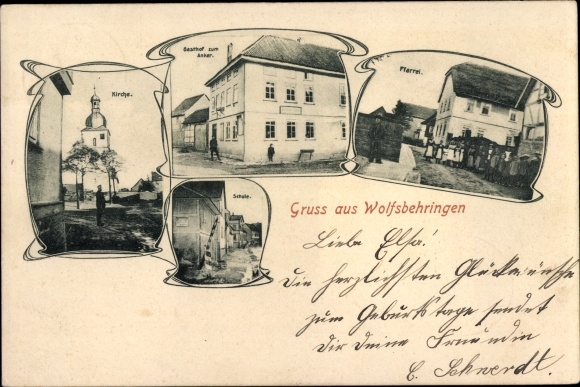 Gasthof zum
Anker.
Kirche.
Pfarrei.
Schule.
Gruss aus Wolfsbehringen
Liebe Elsa!
Die herzlichsten Glückwünsche
zum Geburtstage sendet
dir deine Freundin
E. Schwerdt.